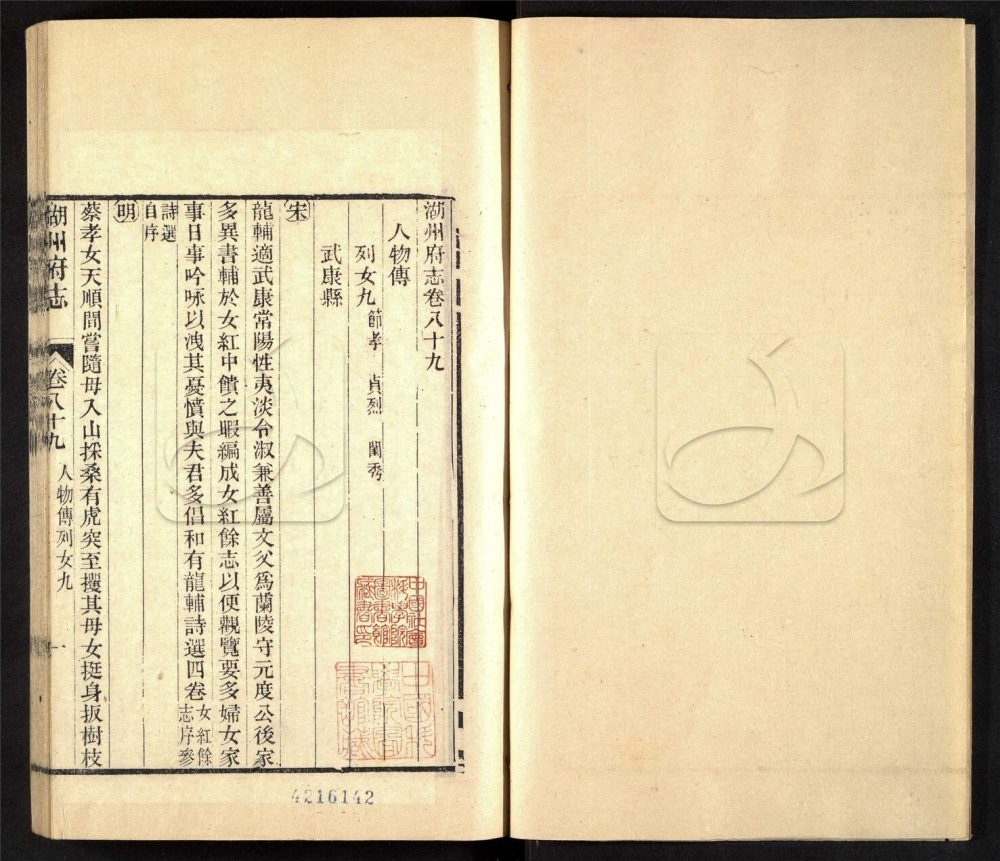 湖州府志卷八十九
人物傳
列女九 節孝 貞烈 閨秀
武康縣
宋
龍輔適武康常陽性夷淡令淑兼善屬文父為蘭陵守元度公後家
多異書輔於女紅中饋之暇編成女紅餘志以便觀覽要多婦女家
事日事吟咏以洩其憂憤與夫君多倡和有龍輔詩選四卷女紅餘志序參
詩選自序
明
蔡孝女天順間嘗隨母入山採桑有虎突至攫其母女挺身扳樹枝
湖州府志 卷八十九 人物傳列女九 一
中國社會科學院圖書館藏書印
4216142